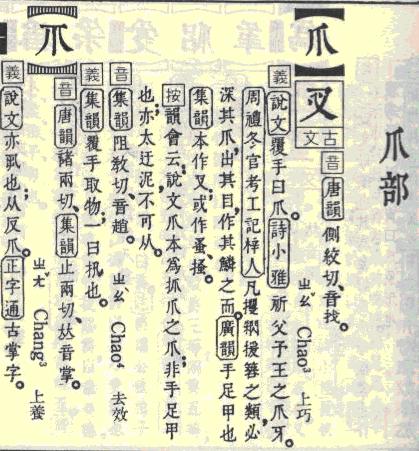 爪部
【爪】
古文
音 唐韻 側絞切、音找。 ㄓㄠ Chao³ 上巧
義 說文 覆手曰爪。詩小雅 祈父予王之爪牙。
周禮冬官考工記梓人 凡攫閷援簭之類,必
深其爪,出其目,作其鱗之而。廣韻 手足甲也
集韻 本作叉,或作蚤、搔。
按 韻會云:說文爪本為抓爪之爪,非手足甲
也;亦太迂泥不可从。
音 集韻 阻敎切、音趙。 ㄓㄠ Chao⁴ 去效
義 集韻 覆手取物;一曰抓也。
【爪】
音 唐韻 諸兩切、集韻 止兩切、𠀤音掌。 ㄓㄤ Chang³ 上養
義 說文 亦丮也;从反爪。正字通 古掌字。